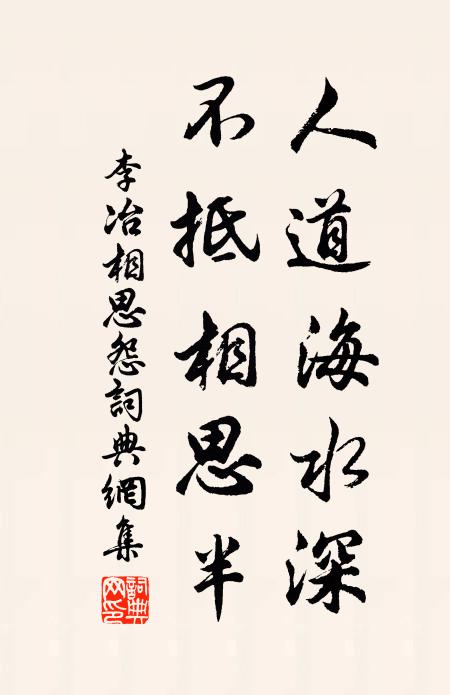 人道海水深
不抵相思半
李冶相思怨詞典網集
詞典網印